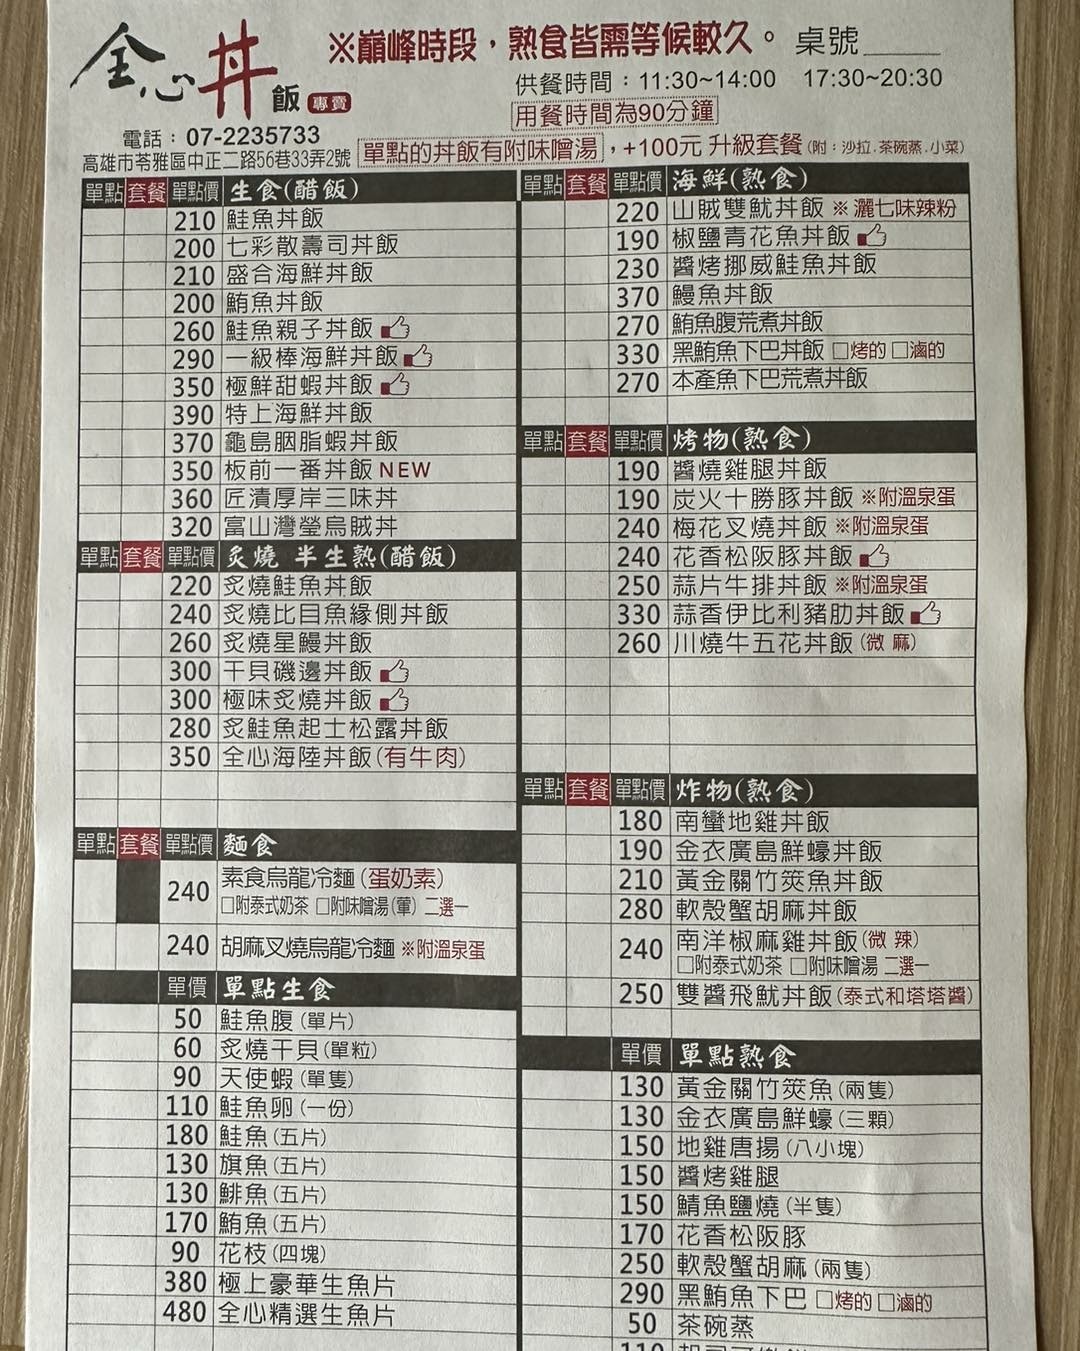 全心丼飯 專賣
※巔峰時段，熟食皆需等候較久。 桌號
供餐時間：11:30~14:00 17:30~20:30
用餐時間為90分鐘
電話：07-2235733
高雄市苓雅區中正二路56巷33弄2號
單點的丼飯有附味噌湯，+100元 升級套餐（附：沙拉.茶碗蒸.小菜）
單點 套餐 單點價 生食(醋飯)
210 鮭魚丼飯
200 七彩散壽司丼飯
210 盛合海鮮丼飯
200 鮪魚丼飯
260 鮭魚親子丼飯
290 一級棒海鮮丼飯
350 極鮮甜蝦丼飯
390 特上海鮮丼飯
370 龜島胭脂蝦丼飯
350 板前一番丼飯 NEW
360 匠漬厚岸三味丼
320 富山灣瑩烏賊丼
單點 套餐 單點價 炙燒 半生熟(醋飯)
220 炙燒鮭魚丼飯
240 炙燒比目魚緣側丼飯
260 炙燒星鰻丼飯
300 干貝磯邊丼飯
300 極味炙燒丼飯
280 炙鮭魚起士松露丼飯
350 全心海陸丼飯(有牛肉)
單點 套餐 單點價 麵食
240 素食烏龍冷麵(蛋奶素)
□附泰式奶茶 □附味噌湯(葷) 二選一
240 胡麻叉燒烏龍冷麵 ※附溫泉蛋
單價 單點生食
50 鮭魚腹(單片)
60 炙燒干貝(單粒)
90 天使蝦(單隻)
110 鮭魚卵(一份)
180 鮭魚(五片)
130 旗魚(五片)
130 鯡魚(五片)
170 鮪魚(五片)
90 花枝(四塊)
380 極上豪華生魚片
480 全心精選生魚片
單點 套餐 單點價 海鮮(熟食)
220 山賊雙魷丼飯 ※灑七味辣粉
190 椒鹽青花魚丼飯
230 醬烤挪威鮭魚丼飯
370 鰻魚丼飯
270 鮪魚腹荒煮丼飯
330 黑鮪魚下巴丼飯 □烤的 □滷的
270 本產魚下巴荒煮丼飯
單點 套餐 單點價 烤物(熟食)
190 醬燒雞腿丼飯
190 炭火十勝豚丼飯 ※附溫泉蛋
240 梅花叉燒丼飯 ※附溫泉蛋
240 花香松阪豚丼飯
250 蒜片牛排丼飯 ※附溫泉蛋
330 蒜香伊比利豬肋丼飯
260 川燒牛五花丼飯(微 麻)
單點 套餐 單點價 炸物(熟食)
180 南蠻地雞丼飯
190 金衣廣島鮮蠔丼飯
210 黃金關竹筴魚丼飯
280 軟殼蟹胡麻丼飯
240 南洋椒麻雞丼飯(微 辣)
□附泰式奶茶 □附味噌湯 二選一
250 雙醬飛魷丼飯(泰式和塔塔醬)
單價 單點熟食
130 黃金關竹筴魚(兩隻)
130 金衣廣島鮮蠔(三顆)
150 地雞唐揚(八小塊)
150 醬烤雞腿
150 鯖魚鹽燒(半隻)
170 花香松阪豚
250 軟殼蟹胡麻(兩隻)
290 黑鮪魚下巴 □烤的 □滷的
50 茶碗蒸
110